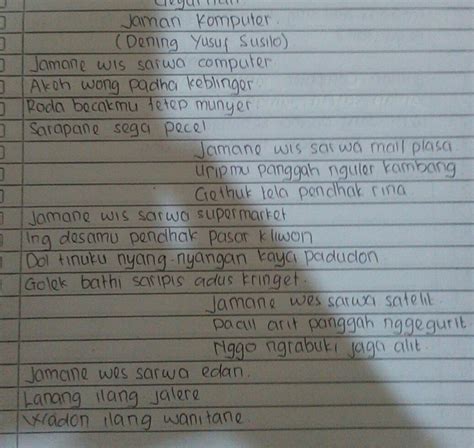 Jaman Komputer.
(Dening Yusuf Susilo)
Jamane wis sarwa computer
Akeh wong padha keblinger.
Roda becakmu tetep munyer.
Sarapane sega pecel
Jamane wis sarwa mall plasa
Uripmu panggah nguler kambang.
Gethuk tela pendhak rina
Jamane wis sarwa supermarket
Ing desamu pendhak pasar kliwon
Dol tinuku nyang-nyangan kaya padudon
Golek bathi saripis adus kringet.
Jamane wes sarwa satelit.
Pacul arit panggah nggegurit.
Nggo ngrabuki jaga alit.
Jamane wes sarwa edan.
Lanang ilang jalere
Wadon ilang wanitane.